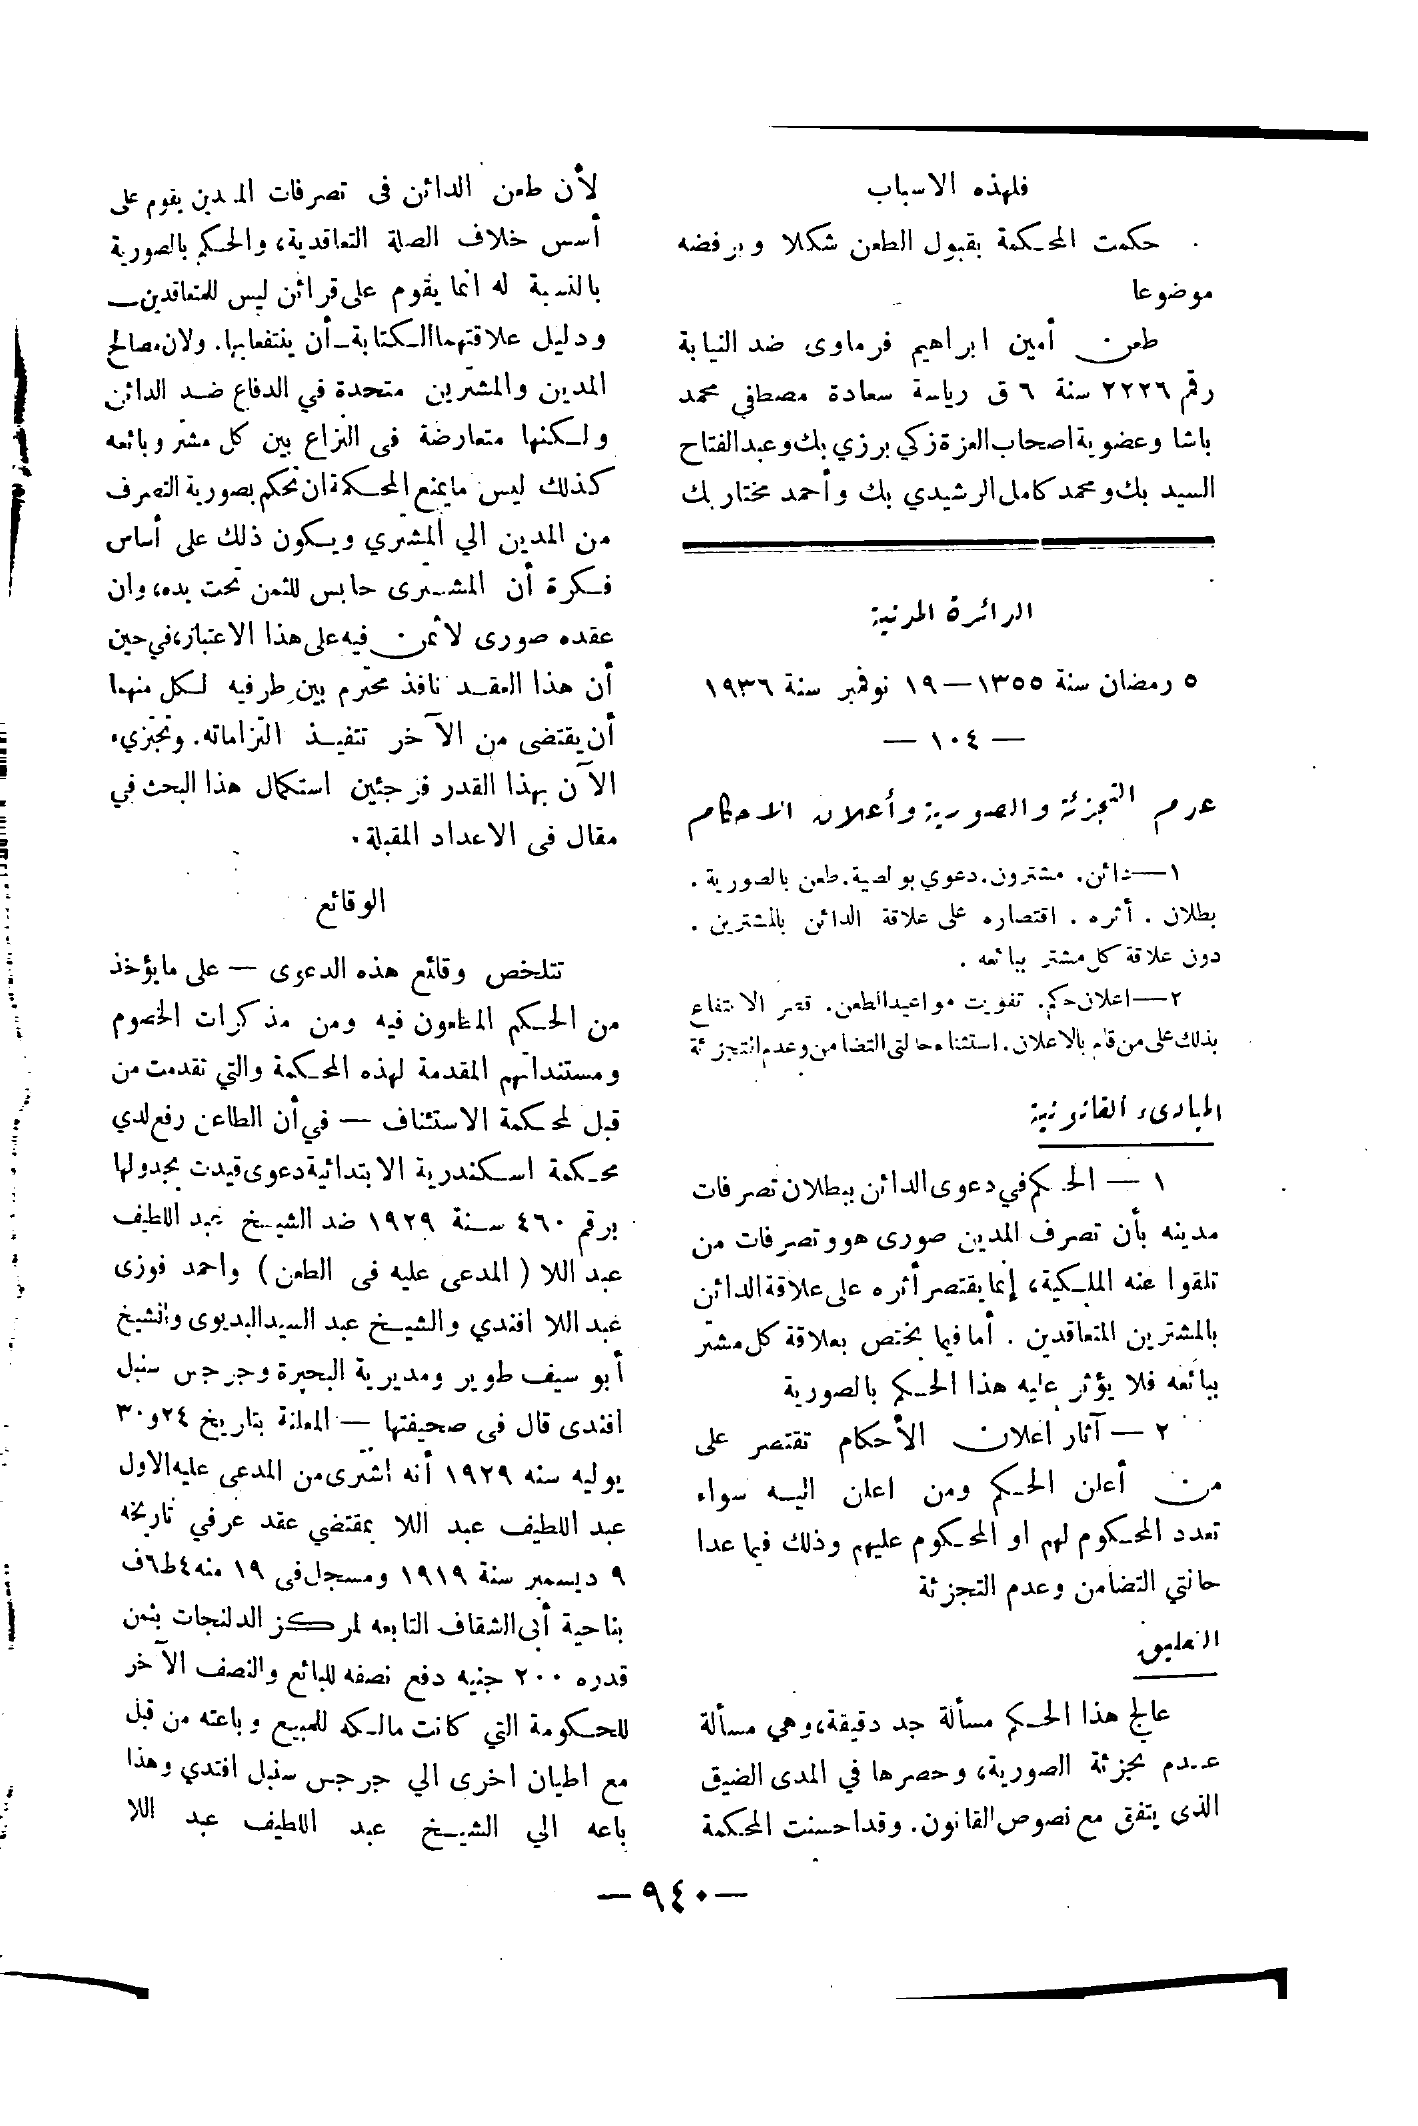 فلهذه الاسباب
حكمت المحكمة بقبول الطعن شكلا وبرفضه
موضوعا
طعن أمين ابراهيم فرماوى ضد النيابة
رقم ٢٢٢٦ سنة ٦ ق رياسة سعادة مصطفي محمد
باشا وعضوية اصحاب العزة زكي برزي بك وعبد الفتاح
السيد بك ومحمد كامل الرشيدي بك وأحمد مختار بك
الدائرة المدنية
٥ رمضان سنة ١٣٥٥ — ١٩ نوفمبر سنة ١٩٣٦
— ١٠٤ —
عدم التجزئة والصورية وأعلان الاحكام
١ — دائن. مشترون. دعوي بولصية. طعن بالصورية.
بطلان. أثره. اقتصاره على علاقة الدائن بالمشترين.
دون علاقة كل مشتر ببائعه.
٢ — اعلان حكم. تفويت مواعيد الطعن. قصر الانتفاع
بذلك على من قام بالاعلان. استثناء حالتى التضامن وعدم التجزئة
المبادىء القانونية
١ — الحكم في دعوى الدائن ببطلان تصرفات
مدينه بأن تصرف المدين صورى هو وتصرفات من
تلقوا عنه الملكية، إنما يقتصر أثره على علاقة الدائن
بالمشترين المتعاقدين. أما فيما يختص بعلاقة كل مشتر
ببائعه فلا يؤثر عليه هذا الحكم بالصورية
٢ — آثار اعلان الأحكام تقتصر على
من أعلن الحكم ومن اعلن اليه سواء
تعدد المحكوم لهم او المحكوم عليهم وذلك فيما عدا
حالتي التضامن وعدم التجزئة
التعليق
عالج هذا الحكم مسألة جد دقيقة، وهي مسألة
عدم تجزئة الصورية، وحصرها في المدى الضيق
الذى يتفق مع نصوص القانون. وقد احسنت المحكمة
لأن طعن الدائن فى تصرفات المدين يقوم على
أسس خلاف الصلة التعاقدية، والحكم بالصورية
بالنسبة له انما يقوم على قرائن ليس للمتعاقدين —
ودليل علاقتهما الكتابة — أن ينتفعا بها. ولان مصالح
المدين والمشترين متحدة في الدفاع ضد الدائن
ولكنها متعارضة فى النزاع بين كل مشتر وبائعه
كذلك ليس ما يمنع المحكمة ان تحكم بصورية التصرف
من المدين الي المشترى ويكون ذلك على أساس
فكرة أن المشترى حابس للثمن تحت يده، وان
عقده صورى لا ثمن فيه على هذا الاعتبار، في حين
أن هذا العقد نافذ محترم بين طرفيه لكل منهما
أن يقتضى من الآخر تتفيذ التزاماته. ونجتزيء
الآن بهذا القدر مرجئين استكمال هذا البحث في
مقال فى الاعداد المقبلة.
الوقائع
تتلخص وقائع هذه الدعوى — على ما يؤخذ
من الحكم المطعون فيه ومن مذكرات الخصوم
ومستنداتهم المقدمة لهذه المحكمة والتي تقدمت من
قبل لمحكمة الاستئناف — في أن الطاعن رفع لدي
محكمة اسكندرية الابتدائية دعوى قيدت بجدولها
برقم ٤٦٠ سنة ١٩٢٩ ضد الشيخ عبد اللطيف
عبد اللا (المدعى عليه فى الطعن) واحمد فوزى
عبد اللا افندي والشيخ عبد السيد البديوى والشيخ
أبو سيف طوير ومديرية البحيرة وجرجس سنبل
افندى قال فى صحيفتها — المعلنة بتاريخ ٢٤ و٣٠
يوليه سنه ١٩٢٩ أنه اشترى من المدعى عليه الاول
عبد اللطيف عبد اللا بمقتضي عقد عرفي تاريخه
٩ ديسمبر سنة ١٩١٩ ومسجل فى ١٩ منه ٤ط ٦ف
بناحية أبى الشقاف التابعه لمركز الدلنجات بثمن
قدره ٢٠٠ جنيه دفع نصفه للبائع والنصف الآخر
للحكومة التي كانت مالكه للمبيع وباعته من قبل
مع اطيان اخرى الي جرجس سنبل افندي وهذا
باعه الي الشيخ عبد اللطيف عبد اللا
— ٩٤٠ —